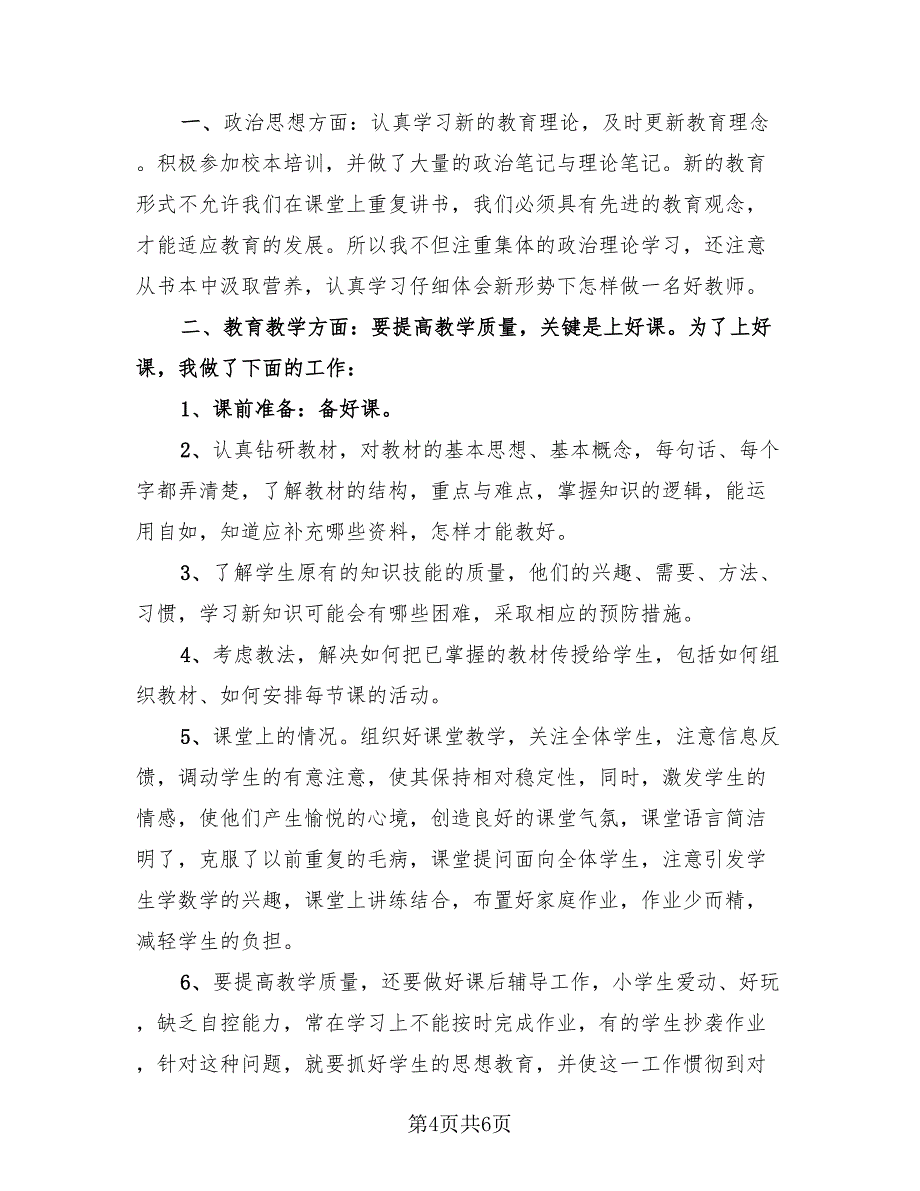 一、政治思想方面：认真学习新的教育理论，及时更新教育理念
。积极参加校本培训，并做了大量的政治笔记与理论笔记。新的教育
形式不允许我们在课堂上重复讲书，我们必须具有先进的教育观念，
才能适应教育的发展。所以我不但注重集体的政治理论学习，还注意
从书本中汲取营养，认真学习仔细体会新形势下怎样做一名好教师。
二、教育教学方面：要提高教学质量，关键是上好课。为了上好
课，我做了下面的工作：
1、课前准备：备好课。
2、认真钻研教材，对教材的基本思想、基本概念，每句话、每个
字都弄清楚，了解教材的结构，重点与难点，掌握知识的逻辑，能运
用自如，知道应补充哪些资料，怎样才能教好。
3、了解学生原有的知识技能的质量，他们的兴趣、需要、方法、
习惯，学习新知识可能会有哪些困难，采取相应的预防措施。
4、考虑教法，解决如何把已掌握的教材传授给学生，包括如何组
织教材、如何安排每节课的活动。
5、课堂上的情况。组织好课堂教学，关注全体学生，注意信息反
馈，调动学生的有意注意，使其保持相对稳定性，同时，激发学生的
情感，使他们产生愉悦的心境，创造良好的课堂气氛，课堂语言简洁
明了，克服了以前重复的毛病，课堂提问面向全体学生，注意引发学
生学数学的兴趣，课堂上讲练结合，布置好家庭作业，作业少而精，
减轻学生的负担。
6、要提高教学质量，还要做好课后辅导工作，小学生爱动、好玩
，缺乏自控能力，常在学习上不能按时完成作业，有的学生抄袭作业
，针对这种问题，就要抓好学生的思想教育，并使这一工作惯彻到对
第4页共6页